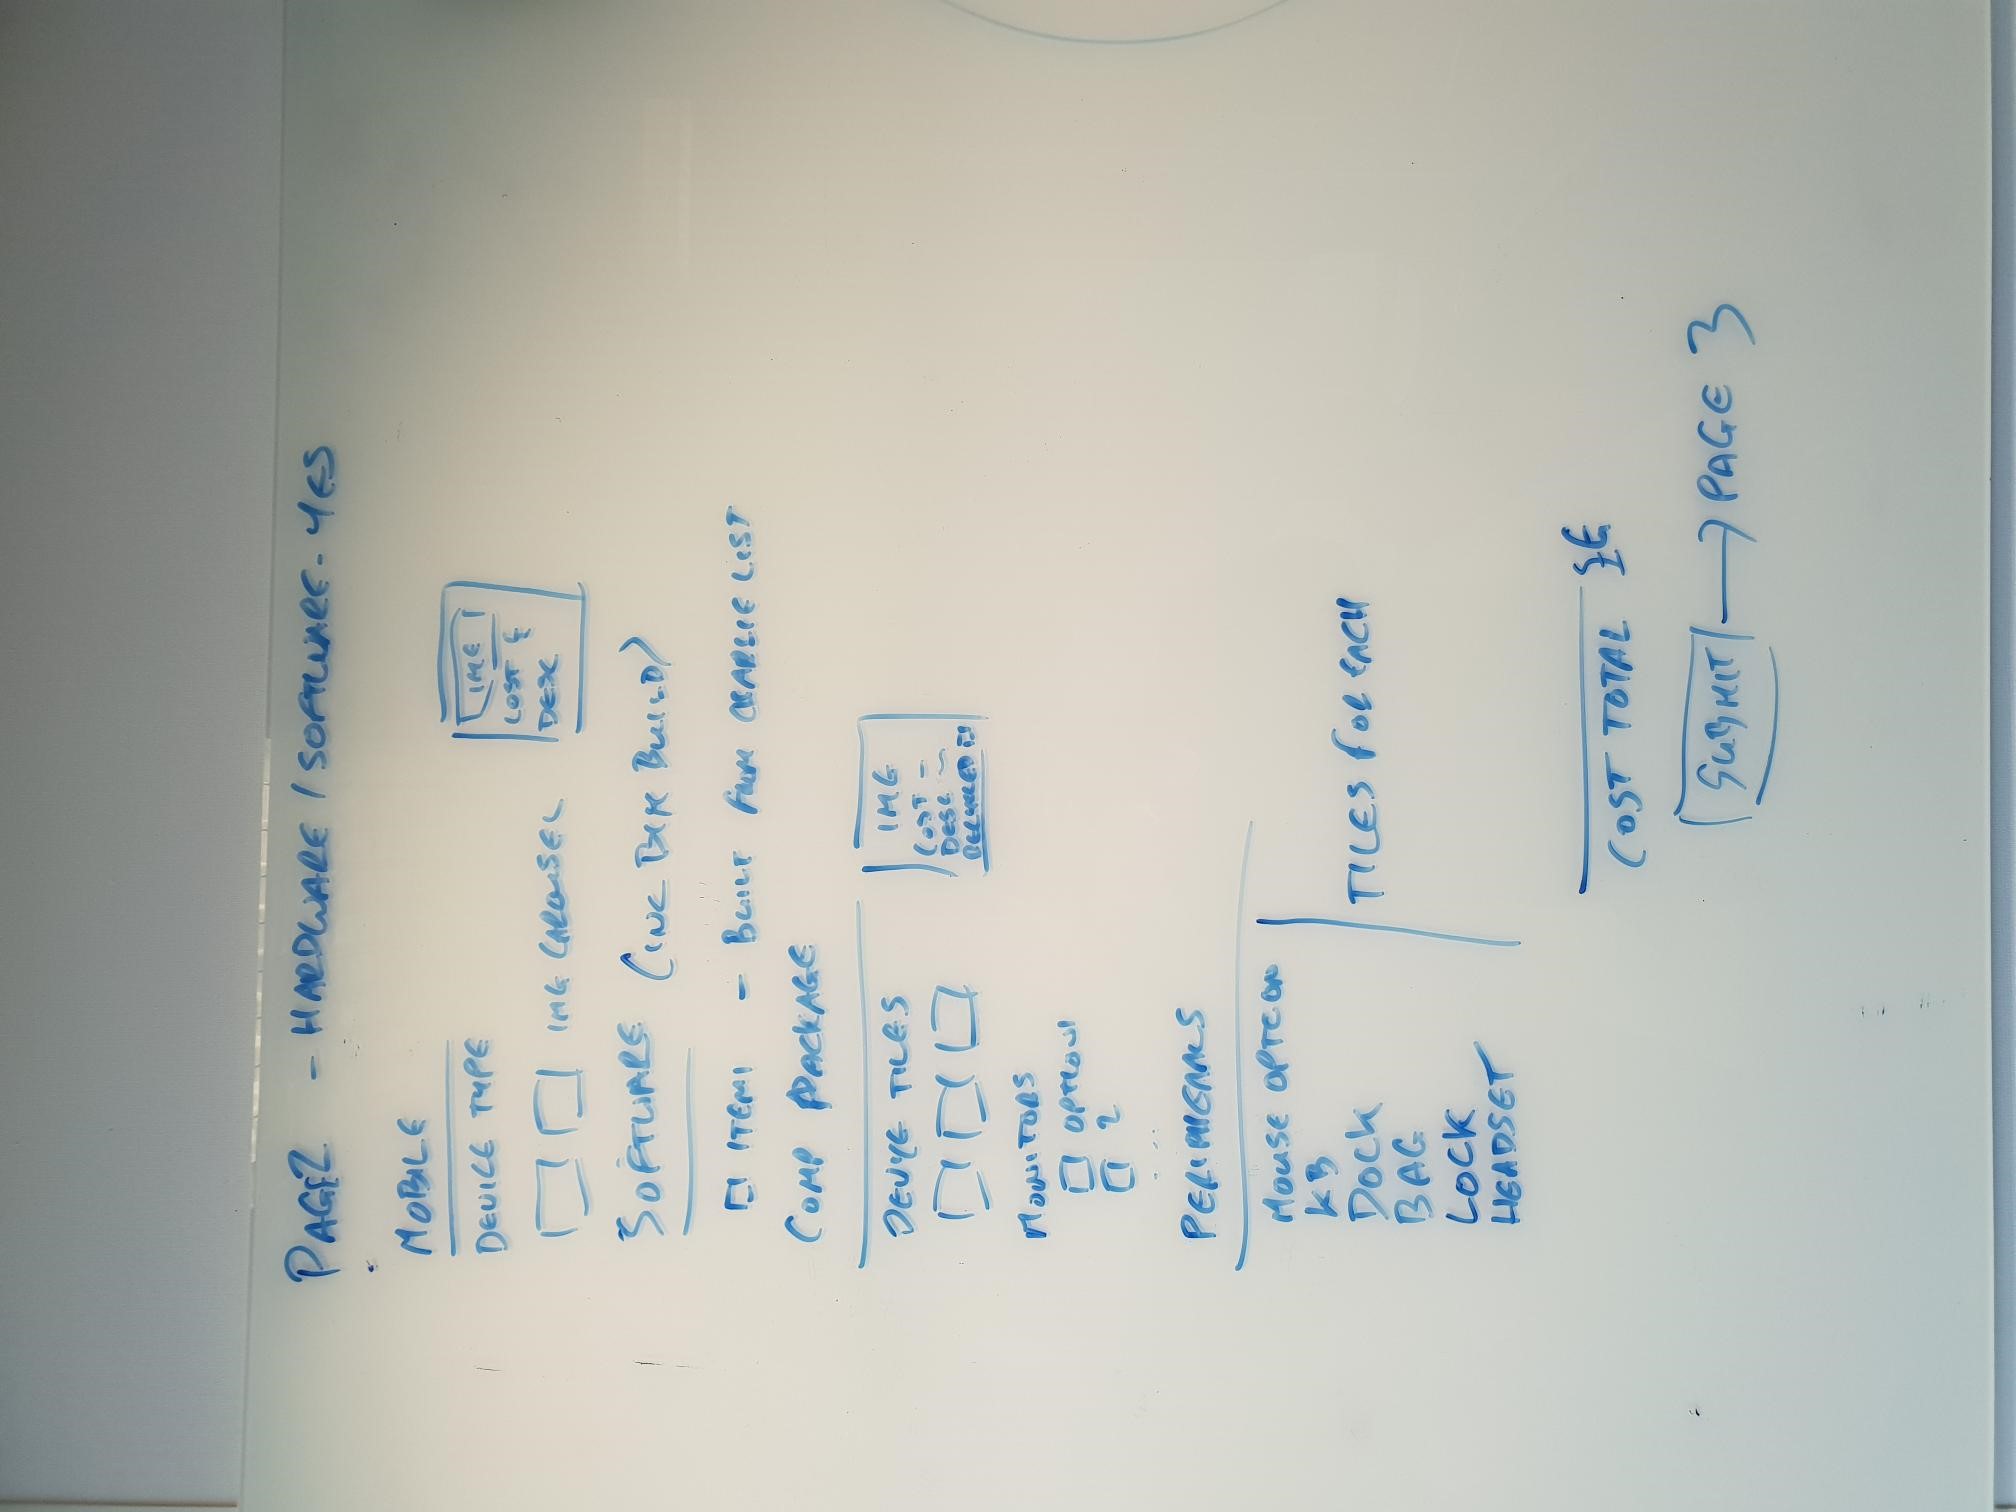 PAGE 2 - HARDWARE / SOFTWARE - YES
MOBILE
DEVICE TYPE
IMG
COST £
DESC
IMG CAROUSEL
SOFTWARE (INC BUILD)
ITEM 1 - BUILT FROM CHARLIE LIST
COMP PACKAGE
DEVICE TILES
IMG
COST -
DESC ~
MONITORS
OPTION 1
2
...
PERIPHERALS
MOUSE OPTION
KB
DOCK
TILES FOR EACH
BAG
LOCK
HEADSET
COST TOTAL £
SUBMIT → PAGE 3